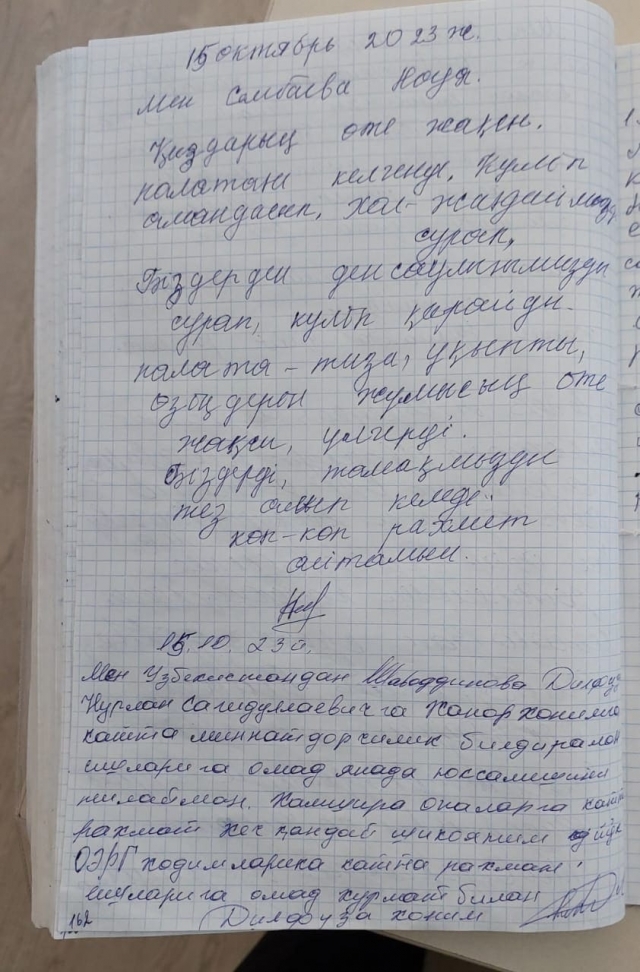 15 октябрь 2023 ж.
Мен Самбаева
Қыздарың оте жақсы.
палатаға келгенде, Кулып
амандасып, хал-жағдаймызды
сурап,
Біздердің денсаулығымызды
сурап, кулып қарайды.
палата - таза, уқыпты,
өзіңдерің жумысың оте
жақсы, үлгерді.
Біздерді, тамақмызды
тез алып келеді
коп-коп рахмет
айтамын.
15.10.23г.
Мен Узбекистондан Дилфуза
Нурлан Сагидуллаевичга Жанар хонимга
катта миннатдорчилик билдираман
ишларига омад янада юксалишини
тилайман. Хамшира опаларга катта
рахмат хеч қандай шикоятим йўқ
ОЭРГ ходимларика катта рахмат
ишларига омад хурмат билан
Дилфуза хоним
162